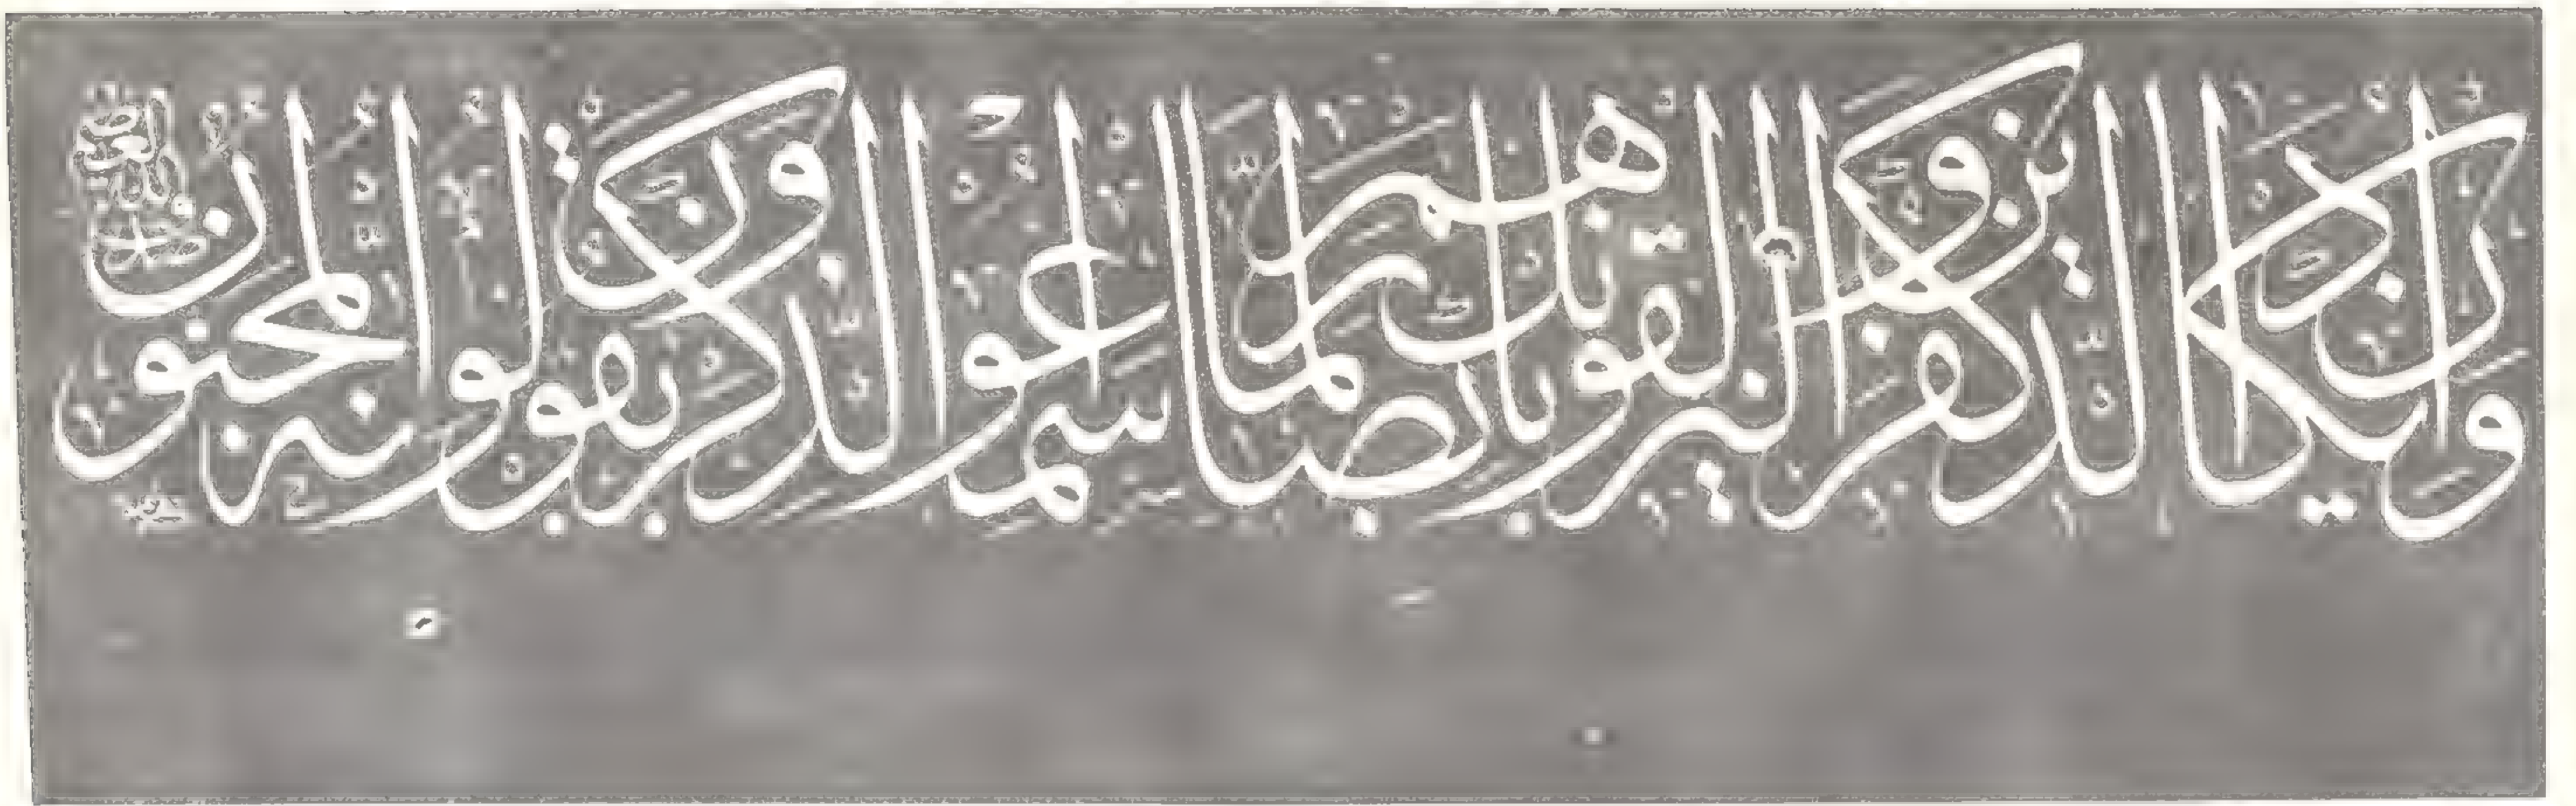 وإن يكاد الذين كفروا ليزلقونك بأبصارهم لما سمعوا الذكر ويقولون إنه لمجنون